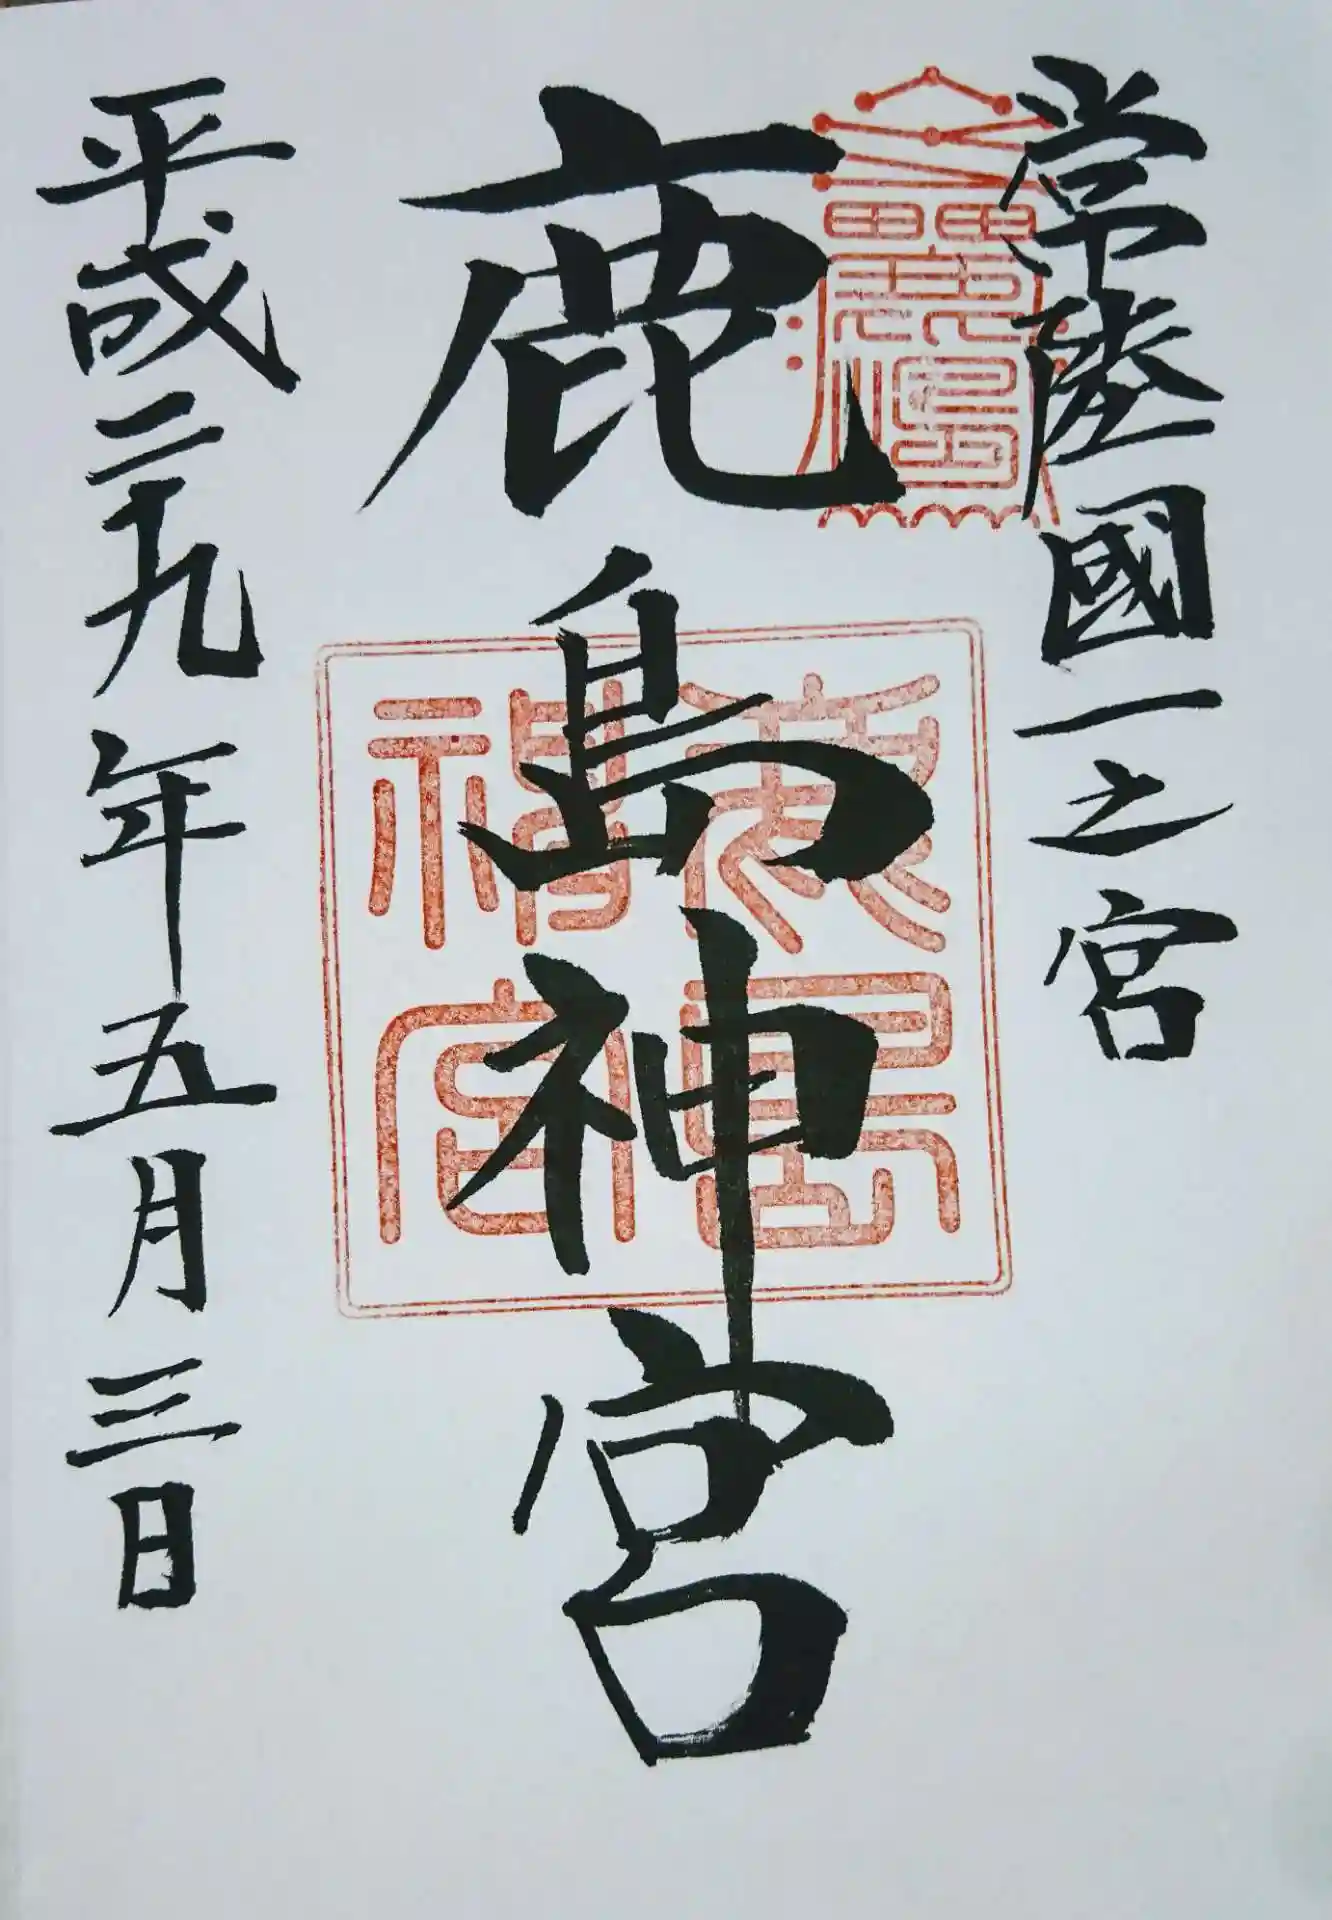 常陸國一之宮
鹿島神宮
平成二十九年五月三日